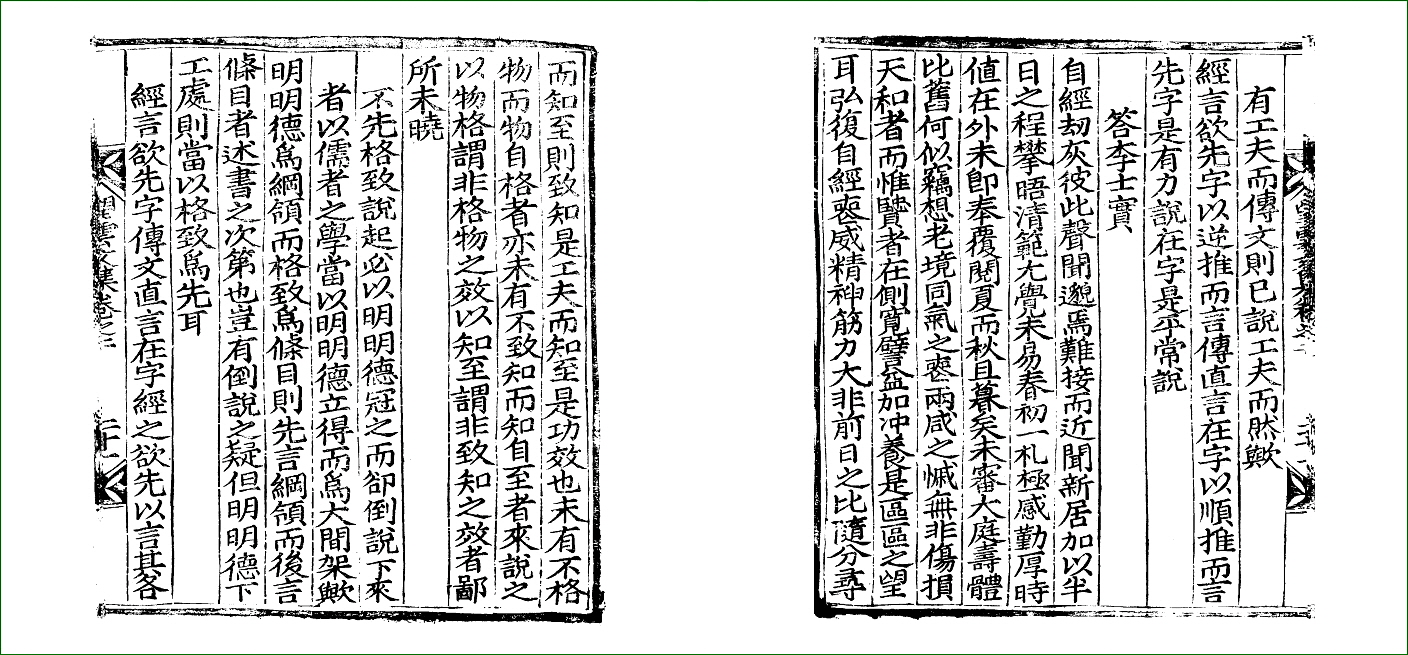 而知至則致知是工夫而知至是功效也未有不格
物而物自格者亦未有不致知而知自至者來說之
以物格謂非格物之效以知至謂非致知之效者鄙
所未曉
不先格致說起必以明明德冠之而卻倒說下來
者以儒者之學當以明明德立得而爲大間架歟
明明德爲綱領而格致爲條目則先言綱領而後言
條目者述書之次第也豈有倒說之疑但明明德下
工處則當以格致爲先耳
經言欲先字傳文直言在字經之欲先以言其各
雲文集卷之二 二十一
有工夫而傳文則已說工夫而然歟
經言欲先字以逆推而言傳直言在字以順推而言
先字是有力說在字是平常說
答李士實
自經劫灰彼此聲聞邈焉難接而近聞新居加以半
日之程攀晤清範尤覺未易春初一札極感勤厚時
値在外未卽奉覆閱夏而秋且暮矣未審大庭壽體
比舊何似竊想老境同氣之喪兩咸之慽無非傷損
天和者而惟賢者在側寬譬益加冲養是區區之望
耳弘復自經喪威精神筋力大非前日之比隨分尋